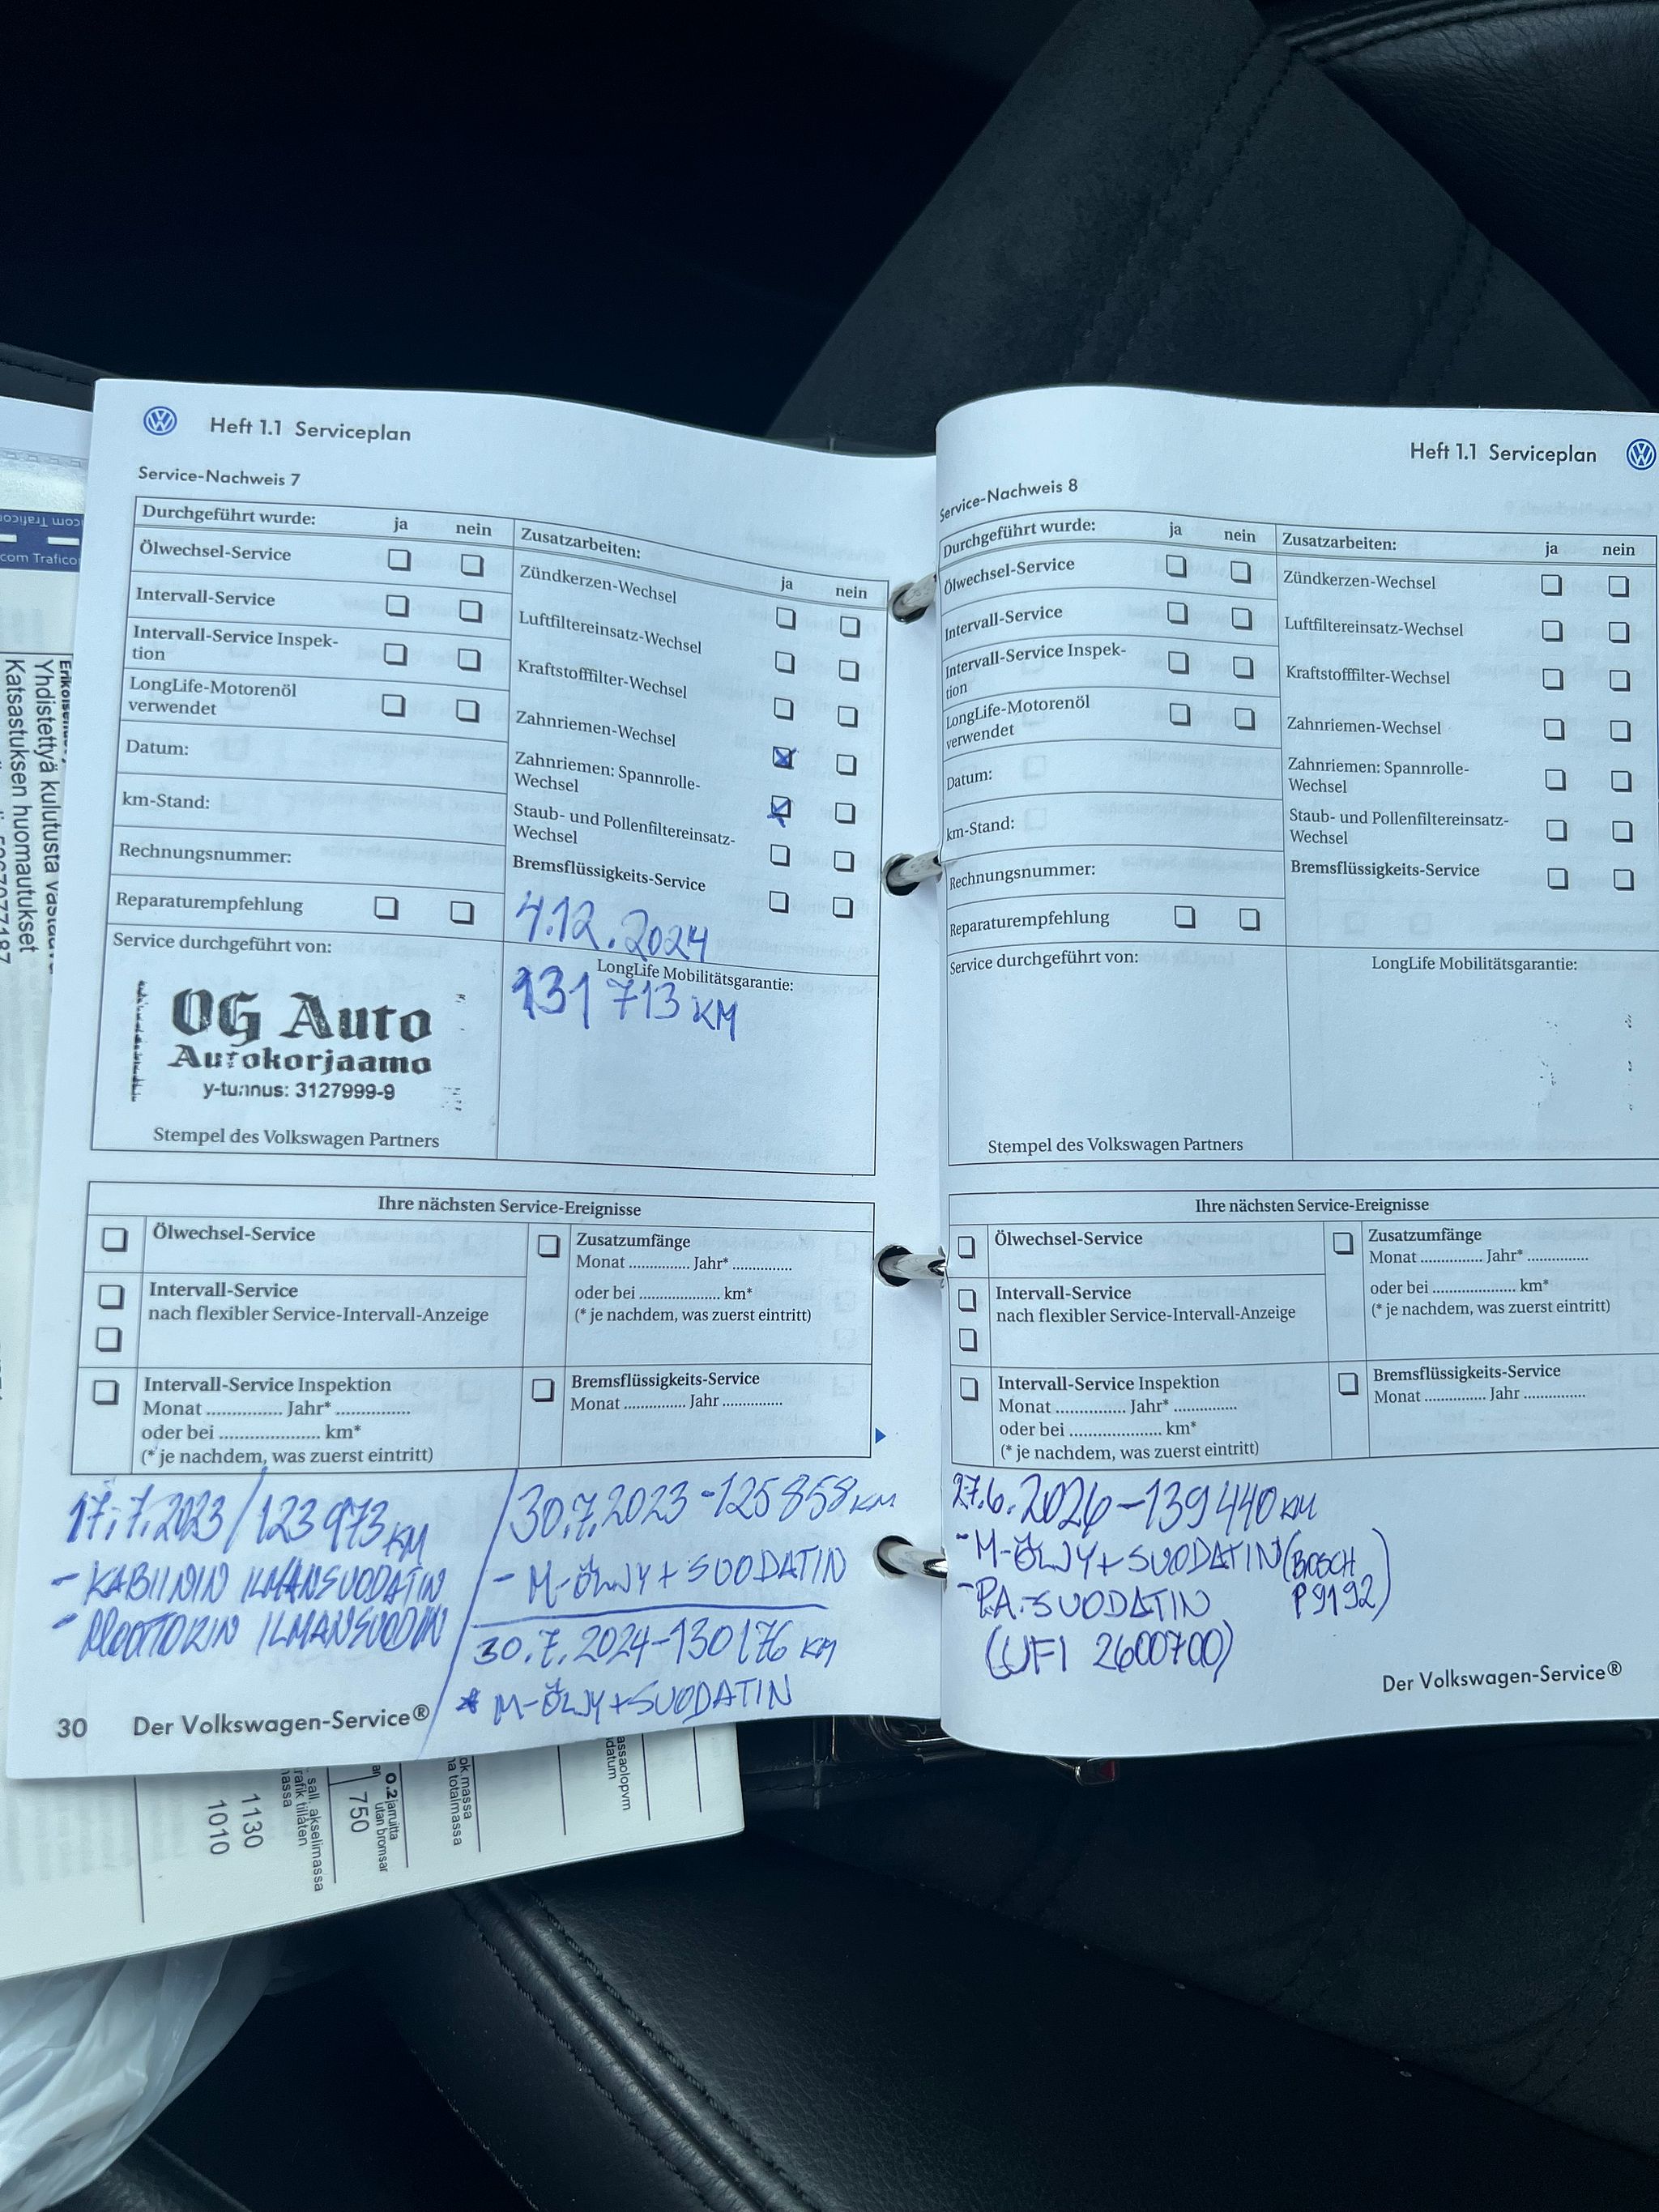 Heft 1.1 Serviceplan
Service-Nachweis 7
Durchgeführt wurde: ja nein
Ölwechsel-Service
Intervall-Service
Intervall-Service Inspek-
tion
LongLife-Motorenöl
verwendet
Datum:
km-Stand:
Rechnungsnummer:
Reparaturempfehlung
Service durchgeführt von:
OG Auto
Autokorjaamo
y-tunnus: 3127999-9
Stempel des Volkswagen Partners
Zusatzarbeiten:
ja nein
Zündkerzen-Wechsel
Luftfiltereinsatz-Wechsel
Kraftstofffilter-Wechsel
Zahnriemen-Wechsel
Zahnriemen: Spannrolle-
Wechsel
Staub- und Pollenfiltereinsatz-
Wechsel
Bremsflüssigkeits-Service
4.12.2024
LongLife Mobilitätsgarantie:
131 713 KM
Ihre nächsten Service-Ereignisse
Ölwechsel-Service
Intervall-Service
nach flexibler Service-Intervall-Anzeige
Intervall-Service Inspektion
Monat .............. Jahr* ..............
oder bei .................... km*
(* je nachdem, was zuerst eintritt)
Zusatzumfänge
Monat ............. Jahr* .............
oder bei ................. km*
(* je nachdem, was zuerst eintritt)
Bremsflüssigkeits-Service
Monat ............. Jahr .............
17.7.2023 / 123 973 KM
- KABIININ ILMANSUODATIN
- MOOTTORIN ILMANSUODIN
30.7.2023 - 125 858 KM
- M-ÖLJY + SUODATIN
30.7.2024 - 130 176 KM
* M-ÖLJY + SUODATIN
30 Der Volkswagen-Service®
Heft 1.1 Serviceplan
Service-Nachweis 8
Durchgeführt wurde: ja nein
Ölwechsel-Service
Intervall-Service
Intervall-Service Inspek-
tion
LongLife-Motorenöl
verwendet
Datum:
km-Stand:
Rechnungsnummer:
Reparaturempfehlung
Service durchgeführt von:
Stempel des Volkswagen Partners
Zusatzarbeiten: ja nein
Zündkerzen-Wechsel
Luftfiltereinsatz-Wechsel
Kraftstofffilter-Wechsel
Zahnriemen-Wechsel
Zahnriemen: Spannrolle-
Wechsel
Staub- und Pollenfiltereinsatz-
Wechsel
Bremsflüssigkeits-Service
LongLife Mobilitätsgarantie:
Ihre nächsten Service-Ereignisse
Ölwechsel-Service
Intervall-Service
nach flexibler Service-Intervall-Anzeige
Intervall-Service Inspektion
Monat .............. Jahr* ..............
oder bei .................... km*
(* je nachdem, was zuerst eintritt)
Zusatzumfänge
Monat ............. Jahr* .............
oder bei ................. km*
(* je nachdem, was zuerst eintritt)
Bremsflüssigkeits-Service
Monat ............. Jahr .............
139 440 KM
- M-ÖLJY + SUODATIN (BOSCH
P9192)
- P.A.-SUODATIN
(UFI 2600700)
Der Volkswagen-Service®
com Trafico
Yhdistettyä kulutusta
Katsastuksen huomautukset
1130
1010
sall. akselimassa
rafik tillåten
massa
O.2 jarruitta
utan bromsar
750
ok.massa
na totalmassa
assaolopvm
datum